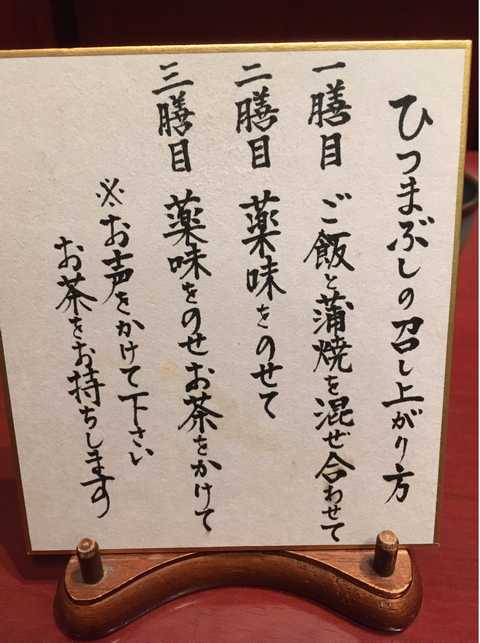 ひつまぶしの召し上がり方
一膳目 ご飯と蒲焼を混ぜ合わせて
二膳目 薬味をのせて
三膳目 薬味をのせお茶をかけて
※お声をかけて下さい
お茶をお持ちします